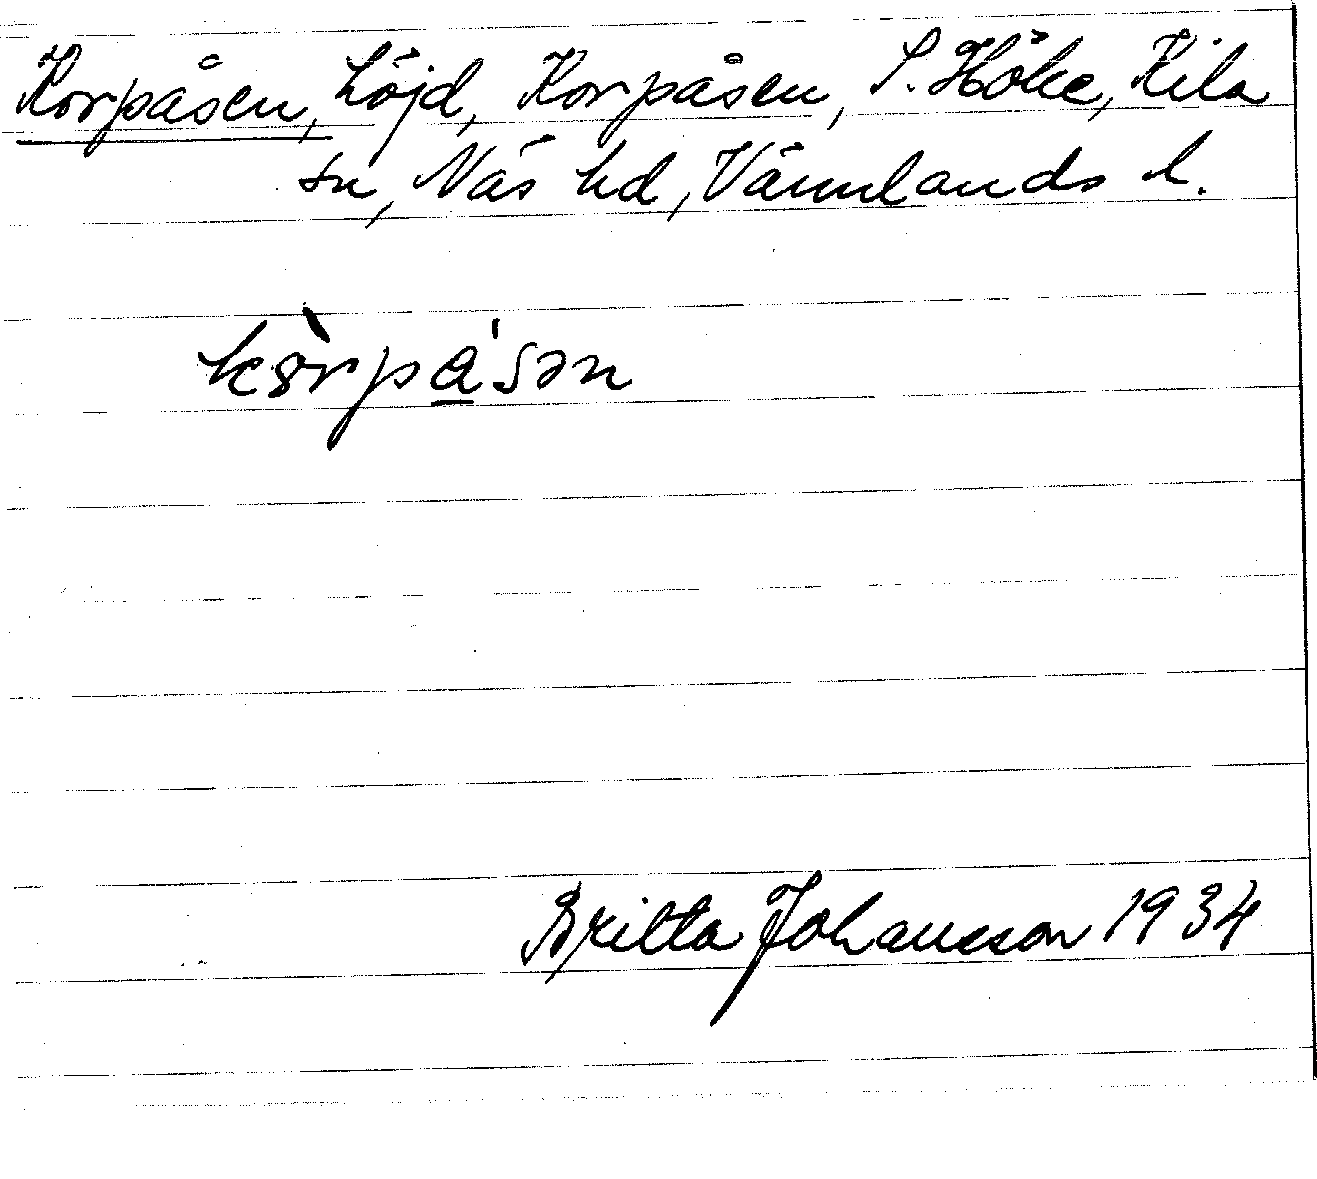 Korpåsen, höjd, Korpåsen, S. Höke, Kila
sn, Näs hd, Värmlands l.
kòrpa̲'sən
Britta Johansson 1934